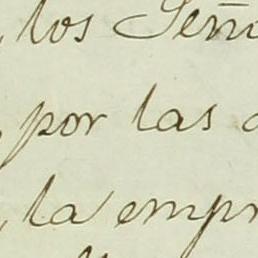 los Señ
por las
la empr